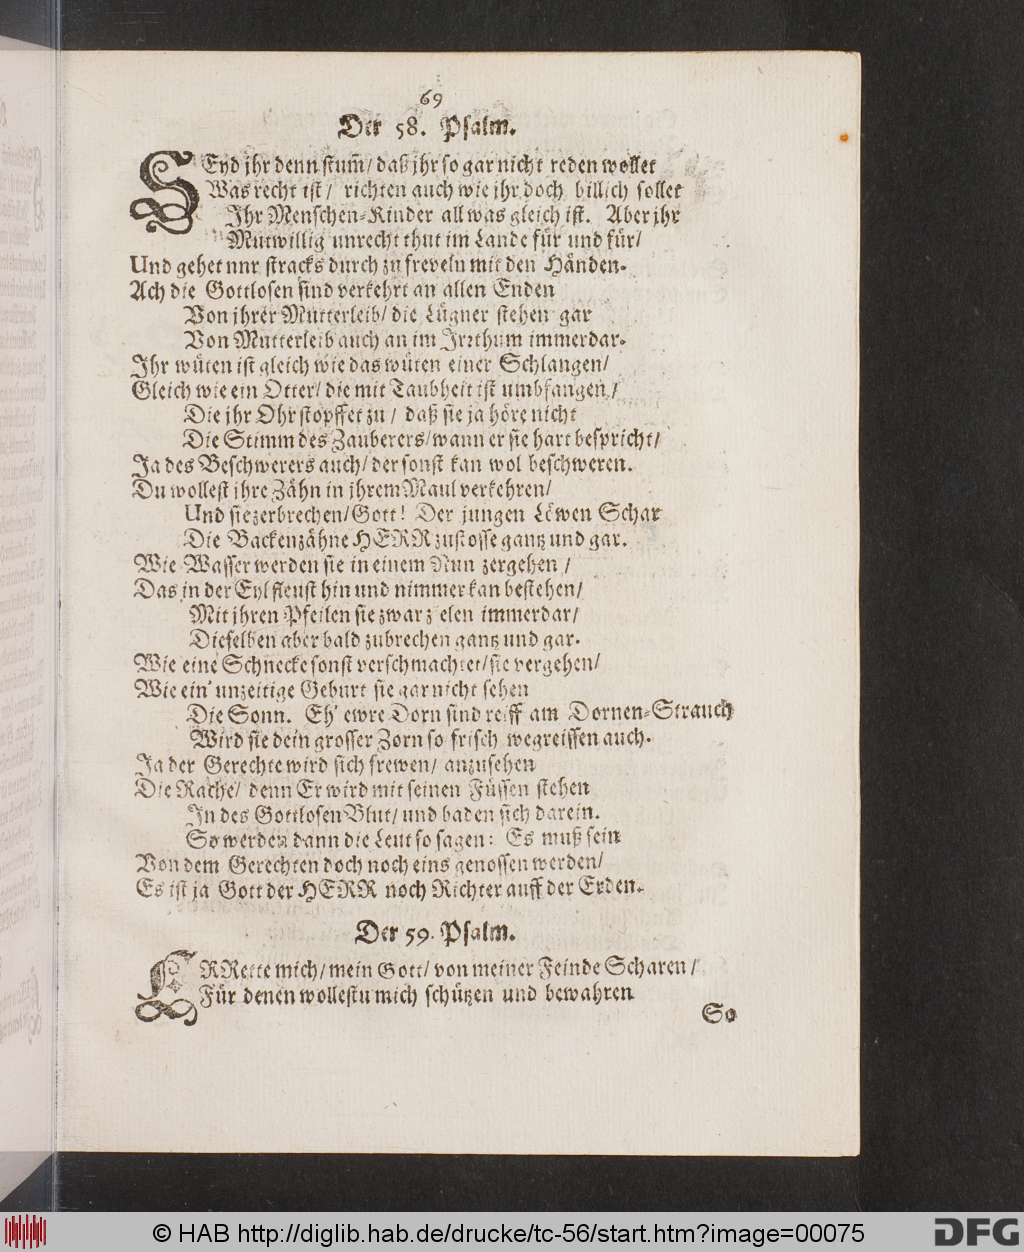 69
Der 58. Psalm.
SEyd jhr denn stum̃/ daß jhr so gar nicht reden wollet
Was recht ist/ richten auch wie jhr doch billich sollet
Jhr Menschen-Kinder all was gleich ist. Aber jhr
Mutwillig unrecht thut im Lande für und für/
Und gehet nnr stracks durch zu freveln mit den Händen.
Ach die Gottlosen sind verkehrt an allen Enden
Von jhrer Mutterleib/ die Lügner stehen gar
Von Mutterleib auch an im Jrꝛthum immerdar.
Jhr wüten ist gleich wie das wüten einer Schlangen/
Gleich wie ein Otter/ die mit Taubheit ist umbfangen/
Die jhr Ohr stopffet zu/ daß sie ja höre nicht
Die Stimm des Zauberers/ wann er sie hart bespricht/
Ja des Beschwerers auch/ der sonst kan wol beschweren.
Du wollest jhre Zähn in jhrem Maul verkehren/
Und sie zerbrechen/ Gott! Der jungen Löwen Schar
Die Backenzähne HERR zustosse gantz und gar.
Wie Wasser werden sie in einem Nun zergehen/
Das in der Eyl fleust hin und nimmer kan bestehen/
Mit jhren Pfeilen sie zwar zielen immerdar/
Dieselben aber bald zubrechen gantz und gar.
Wie eine Schnecke sonst verschmachtet/ sie vergehen/
Wie ein' unzeitige Geburt sie gar nicht sehen
Die Sonn. Eh' ewre Dorn sind reiff am Dornen-Strauch
Wird sie dein grosser Zorn so frisch wegreissen auch.
Ja der Gerechte wird sich frewen/ anzusehen
Die Rache/ denn Er wird mit seinen Füssen stehen
Jn des Gottlosen Blut/ und baden sich darein.
So werden dann die Leut so sagen: Es muß sein
Von dem Gerechten doch noch eins genossen werden/
Es ist ja Gott der HERR noch Richter auff der Erden.
Der 59. Psalm.
ERRette mich/ mein Gott/ von meiner Feinde Scharen/
Für denen wollestu mich schützen und bewahren
So
© HAB http://diglib.hab.de/drucke/tc-56/start.htm?image=00075
DFG